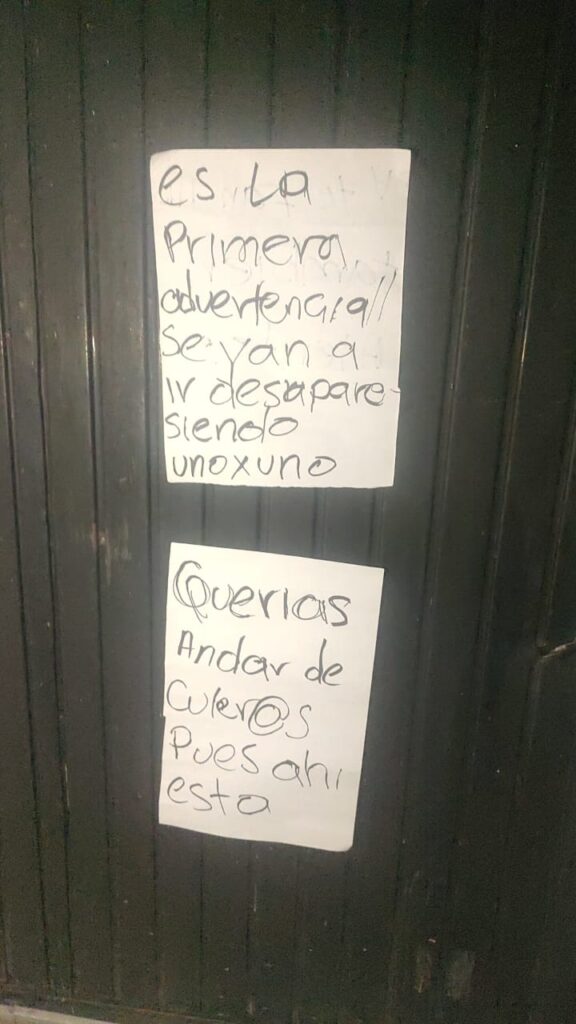 es La
Primera
advertencia//
Se van a
ir desapare-
siendo
unoxuno
Querias
Andar de
Culer@s
Pues ahi
esta